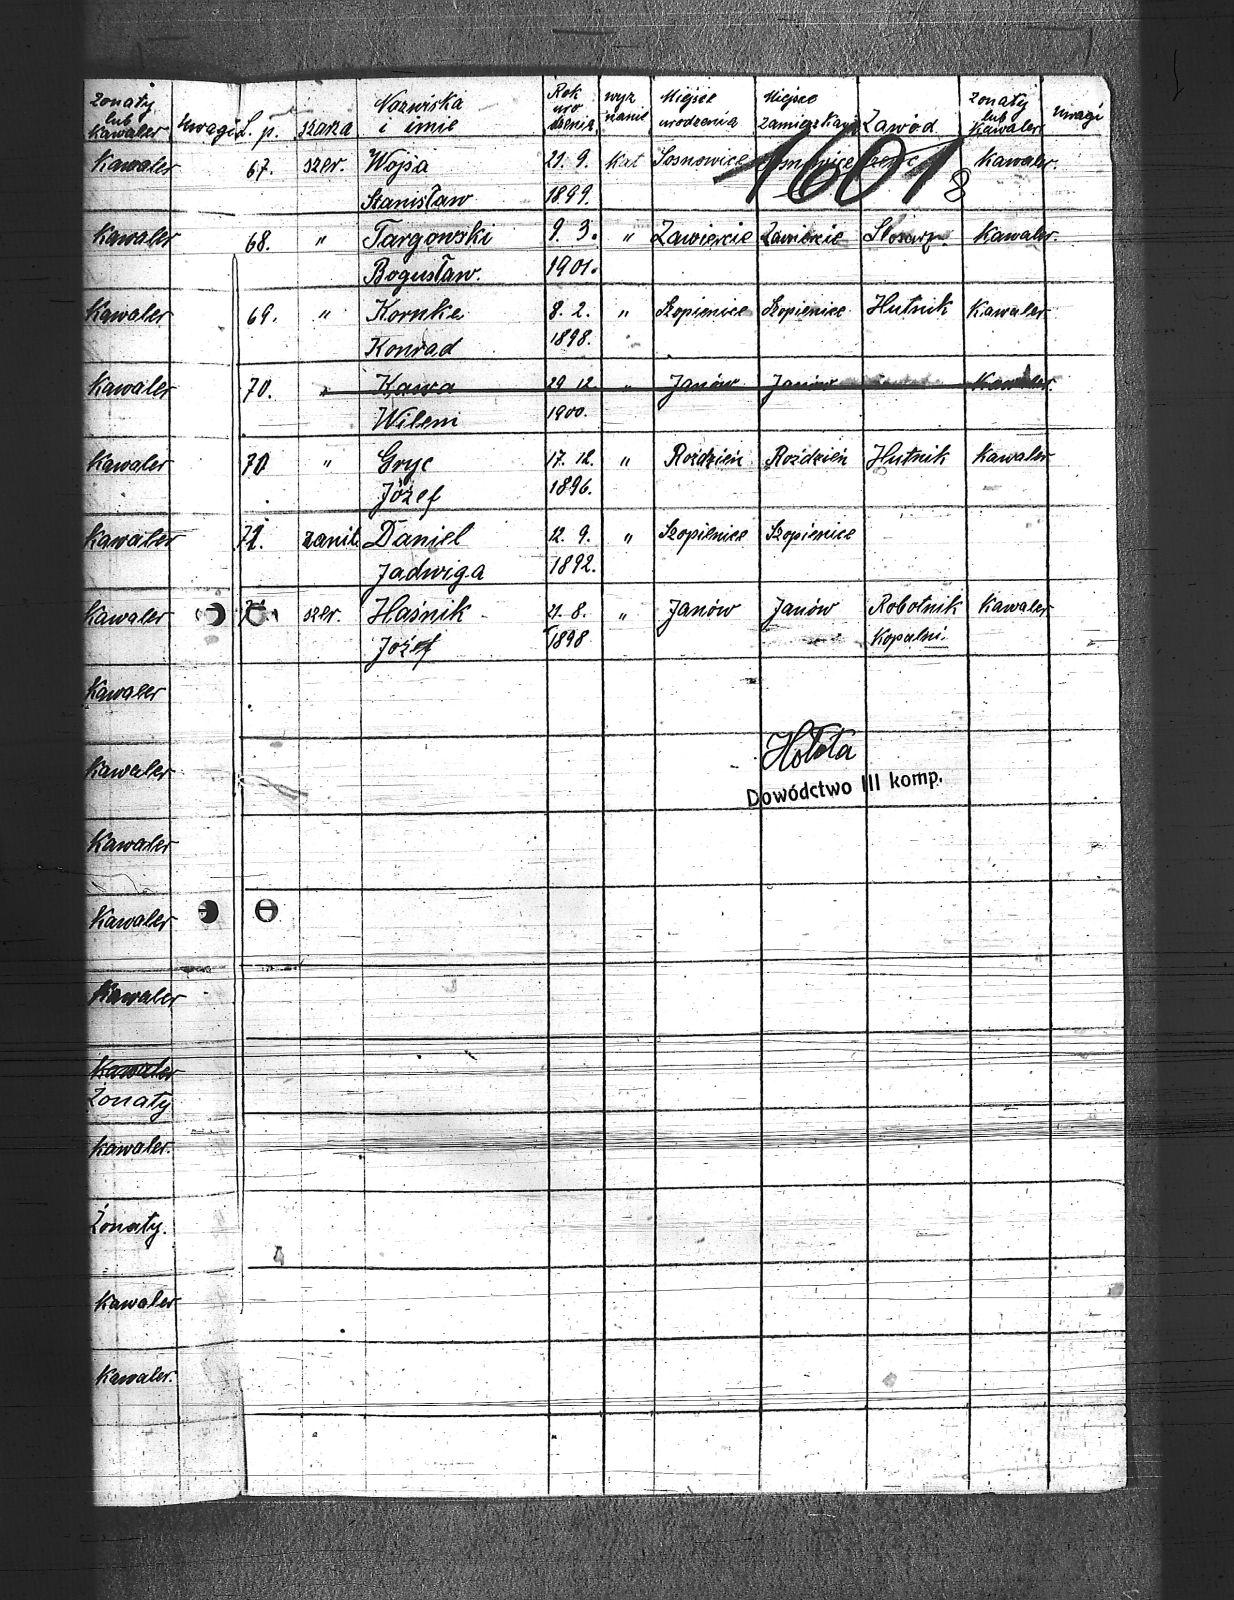 Żonaty lub Kawaler Uwagi L.p. szarża Nazwiska i imie Rok uro dzenia wyz nanie Miejsce urodzenia Miejsce Zamieszkania Zawód Żonaty lub Kawaler Uwagi
Kawaler 67. szer. Wojsa 21. 9. Kat Sosnowice Sosnowice Kawaler.
1601 8
Stanisław 1899.
Kawaler 68. " Targowski 9. 3. " Zawiercie Zawiercie Ślosarz Kawaler.
Bogusław. 1901.
Kawaler 69. " Kornke 8. 2. " Szopienice Szopienice Hutnik Kawaler
Konrad 1898.
Kawaler 70. " Kawa 29 12 " Janów Janów Kawaler.
Wilem 1900.
Kawaler 70 " Gryc 17. 12. " Rozdzień Rozdzień Hutnik Kawaler
Józef 1896.
Kawaler 71. sanit. Daniel 12. 9. " Szopienice Szopienice
Jadwiga 1892.
Kawaler szer. Haśnik 21. 8. " Janów Janów Robotnik Kawaler
Józef 1898 Kopalni.
Kawaler
Hołota
Kawaler
Dowództwo III komp.
Kawaler
Kawaler
Kawaler
Kawaler
Żonaty
Kawaler.
Żonaty.
Kawaler
Kawaler.